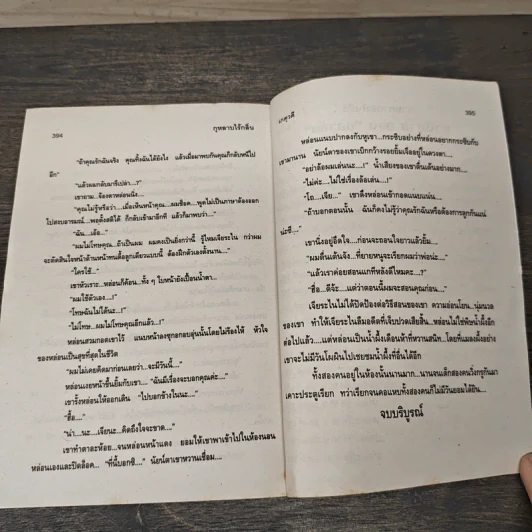 394
กุหลาบไร้กลิ่น
"ถ้าคุณรักฉันจริง คุณทิ้งฉันได้ยังไง แล้วเมื่อมาพบกันคุณก็กลับหนีไป
อีก"
"แล้วผมกลับมารึเปล่า....?"
เขาถาม...จ้องตาหล่อนนิ่ง...
"คุณไม่รู้หรือว่า...เมื่อเห็นหน้าคุณ...ผมช็อค...พูดไม่เป็นภาษาต้องออก
ไปสงบอารมณ์...พอตั้งสติได้ ก็กลับเข้ามาอีกที แล้วก็มาพบว่า...."
"ฉัน...เอ้อ..."
"ผมไม่โทษคุณ...ถ้าเป็นผม ผมคงเป็นยิ่งกว่านี้ รู้ไหมเจียระไน กว่าผม
จะตัดสินใจหน้าด้านหน้าทนตื้อลูกเดียวแบบนี้ ต้องฝึกตัวเองตั้งนาน...."
"ใครใช้..."
เขาหัวเราะ...หล่อนก็ค้อน...ทั้ง ๆ ใบหน้ายังเปื้อนน้ำตา...
"ผมใช้ตัวเอง....!"
"โทษฉันไม่ได้นะ...!"
"ไม่โทษ...ผมไม่โทษคุณอีกแล้ว....!"
หล่อนสวมกอดเขาไว้ แนบหน้าลงซุกอกอบอุ่นนั้นโดยไม่ร้องไห้ หัวใจ
ของหล่อนเป็นสุขที่สุดในชีวิต
"ผมไม่เคยคิดมาก่อนเลยว่า..จะมีวันนี้...."
หล่อนเงยหน้าขึ้นยิ้มกับเขา... "ฉันมีเรื่องจะบอกคุณค่ะ...."
เขารั้งหล่อนให้ออกเดิน "ไปบอกข้างในนะ..."
"อื้อ...."
"น่า...นะ...เจียนะ...คิดถึงใจจะขาด...."
เขาทำตาละห้อย...จนหล่อนหน้าแดง ยอมให้เขาพาเข้าไปในห้องนอน
หล่อนเองและปิดล็อค... "ที่นี้บอกซิ...." นัยน์ตาเขาหวานเชื่อม....
395
หล่อนแนบปากลงกับหูเขา...กระซิบอย่างที่หล่อนอยากกระซิบกับ
เขามานาน นัยน์ตาของเขาเบิกกว้างรอยยิ้มเจืออยู่ในดวงตา....
"อย่าล้อผมเล่นนะ....!" น้ำเสียงของเขาตื่นเต้นอย่างมาก....
"ไม่ค่ะ....ไม่ใช่เรื่องล้อเล่น...!"
"โถ...เจีย..." เขาดึงหล่อนเข้ากอดแน่นแน่น...
"ถ้าบอกตอนนั้น ฉันก็คงไม่รู้ว่าคุณรักฉันหรือต้องการลูกกันแน่
น่ะซี...."
เขานิ่งอยู่อึดใจ...ก่อนจะถอนใจยาวแล้วยิ้ม....
"ผมตื่นเต้นจัง...ที่ยายหนูจะเรียกผมว่าพ่อน่ะ..."
"แล้วเราค่อยสอนแกทีหลังดีไหมคะ...?"
"ฮื่อ...ดีจ้ะ...แต่ว่าตอนนี้ผมจะสอนคุณก่อน..."
เจียระไนไม่ได้ปิดป้องต่อวิธีสอนของเขา ความอ่อนโยน...นุ่มนวล
ของเขา ทำให้เจียระไนลืมอดีตที่เจ็บปวดเสียสิ้น...หล่อนไม่ใช่พิษน้ำผึ้งอีก
ต่อไปแล้ว...แต่หล่อนเป็นน้ำผึ้งเดือนห้าที่หวานสนิท...โดยที่แมลงผึ้งอย่าง
เขาจะไม่มีวันโผผินไปเชยชมน้ำผึ้งที่อื่นได้อีก
ทั้งสองคนอยู่ในห้องนั้นนานมาก...นานจนเด็กสองคนวิ่งกรูกันมา
เคาะประตูเรียก ทว่าเรียกจนคอแหบทั้งสองคนก็ไม่มีวันยอมได้ยิน....
จบบริบูรณ์